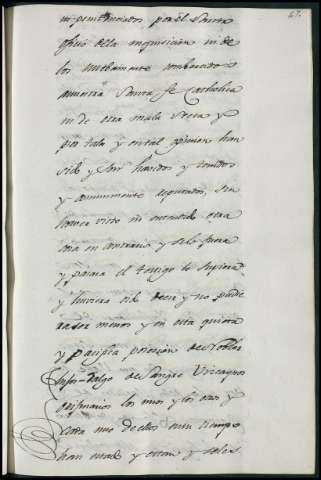 67.
ni penitenciados por el Santo
oficio de la inquisicion ni de
los nuebamente combertidos a
nuestra Santa fe Catholica
ni de otra mala secta y
por tales y en tal opinion han
sido y son havidos y tenidos
y comunmente reputados, sin
haver visto ni entendido otra
cosa en contrario y si lo fuera
y pasara el testigo lo supiera
y huviera oido decir y no pudie
ra ser menos y en esta quieta
y pacifica posesion de Nobles
hijos-dalgo de sangre Vizcaynos
originarios los unos y los otros y
cada uno de ellos en su tiempo
han estado y estan y sales